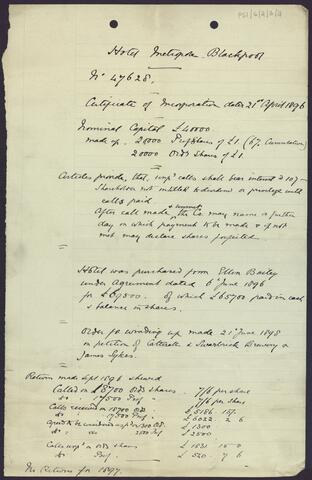 PS1/6/2/2/2
Hotel Metropole Blackpool
No 47628.
Certificate of Incorporation dated 21st April 1896
Nominal Capital £40000.
made up. 20000 Pref Shares of £1. (6% Cumulative)
20000 Ord's Shares of £1.
Articles provide, that unpd calls shall bear interest @ 10%
Shareholder not entitled to dividend or privilege until
calls paid
After call made, & unpaid the Co. may name a further
day on which payment to be made & if not
met may declare shares forfeited.
Hotel was purchased from Ellen Bailey
under Agreement dated 6th June 1896
for £69500. of which £65700 paid in cash
& balance in shares.
Order for winding up made 21st June 1898
on petition of Catterall & Swarbrick Brewery &
James Sykes.
Return made Sept 1896 showed
Called on 15700 Ord shares. 7/6 per share
do 17500 Pref 7/6 per share
Calls received on 15700 Ord. £5186 15/-
do 17500 Pref £6022 2 6
Agreed to be considered as pd on 1300 Ord. £1300
do do 2500 Pref £2500
Calls unpd on Ord shares £1831 15 0
do Pref £520 7 6
No Return for 1897.